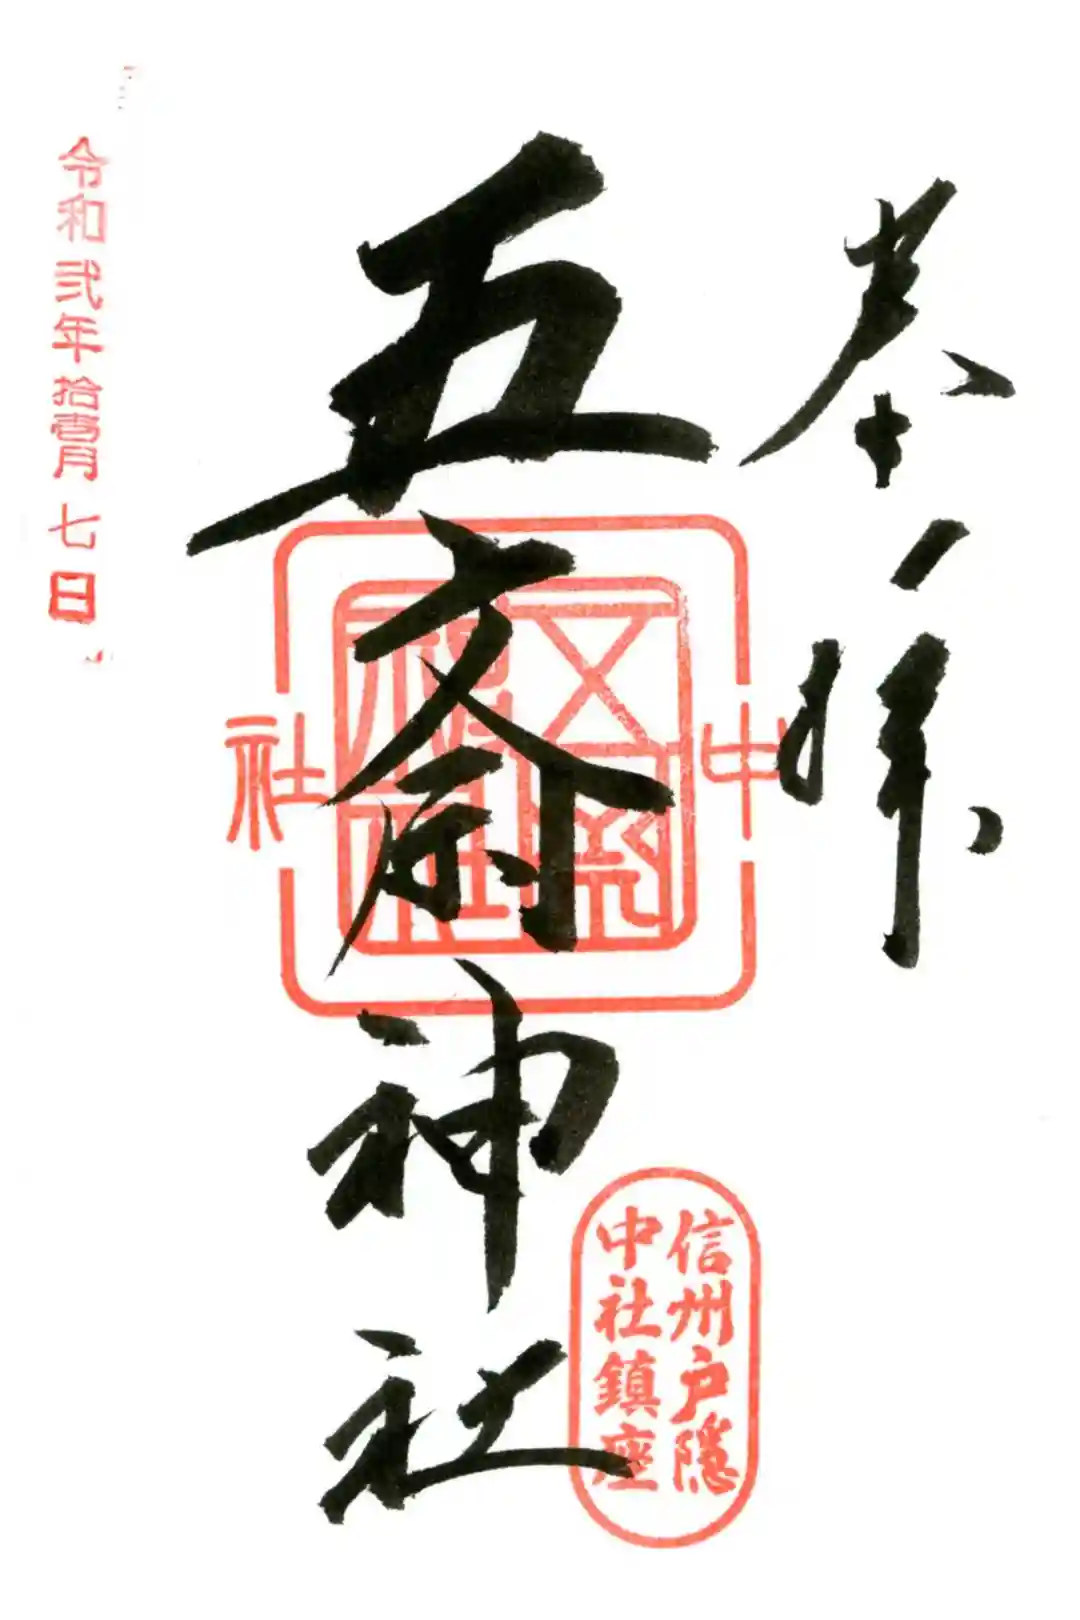 奉拝
五斎神社
中
社
信州戸隠
中社鎮座
令和弐年拾壱月七日